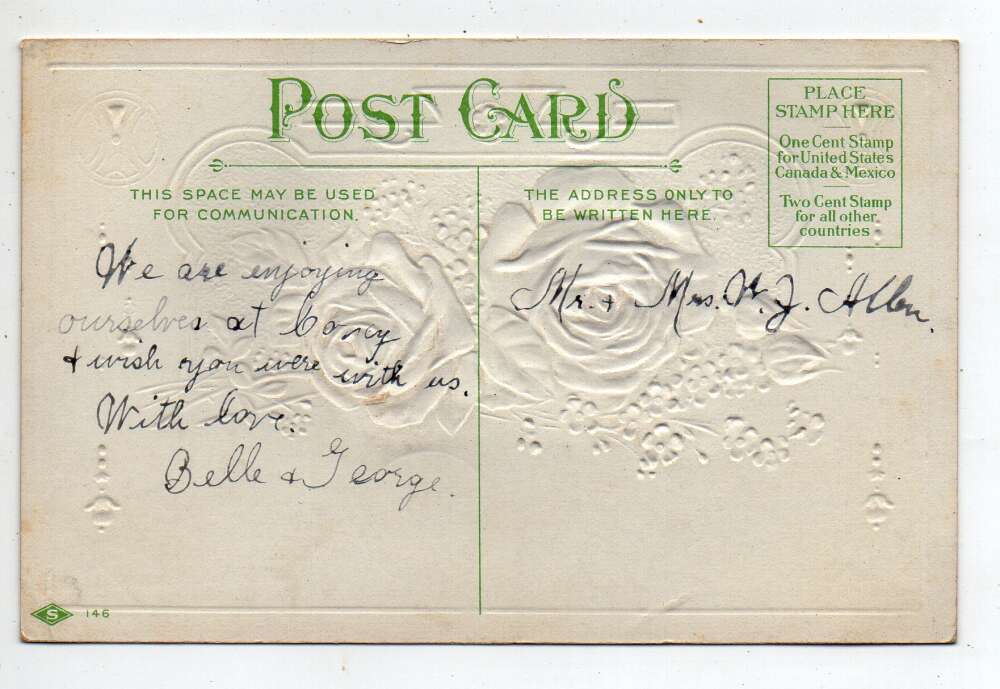 POST CARD
PLACE
STAMP HERE
One Cent Stamp
for United States
Canada & Mexico
Two Cent Stamp
for all other
countries
THIS SPACE MAY BE USED
FOR COMMUNICATION.
THE ADDRESS ONLY TO
BE WRITTEN HERE.
We are enjoying
ourselves at Coney
& wish you were with us.
With love.
Belle & George.
Mr. & Mrs. W. J. Allen.
S 146